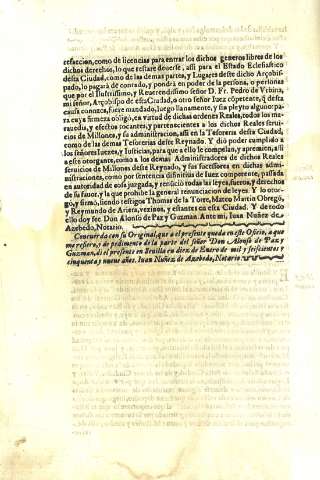 refaccion, como de licencias para entrar los dichos generos libres de los
dichos derechos, lo que restare deuerse, assi para el Estado Eclesiastico
desta Ciudad, como de las demas partes, y Lugares deste dicho Arçobispado,
lo pagarà de contado, y pondrà en poder de la persona, o personas
que por el Ilustrissimo, y Reuerendissimo señor D. Fr. Pedro de Vrbina,
mi señor, Arçobispo de esta Ciudad, o otro señor Iuez cõpetente, q̃ desta
causa conozca, fuere mandado, luego llanamente, y sin pleyto alguno para
cuya firmeza obligò, en virtud de dichas ordenes Reales, todos los marauedis,
y efectos tocantes, y pertenecientes a los dichos Reales seruicios
de Millones, y su administracion, assi en la Tesoreria desta Ciudad,
como de las demas Tesorerias deste Reynado. Y dio poder cumplido a
los señores Iuezes, y Iusticias, para que a ello le compelan, y apremien, assi
a este otorgante, como a los demas Administradores de dichos Reales
seruicios de Millones deste Reynado, y sus sucessores en dichas administraciones,
como por sentencia difinitiua de Iuez competente, passada
en autoridad de cosa juzgada, y renunciò todas las leyes, fueros, y derechos
de su fauor, y la que prohibe la general renunciacion de leyes. Y lo otorgò,
y firmò, siendo testigos Thomas de la Torre, Mateo Martin Obregõ,
y Reymundo de Ariera, vezinos, y estantes en esta Ciudad. Y de todo
ello doy fee. Don Alonso de Paz y Guzman. Ante mi, Iuan Nuñez de
Azebedo, Notario.
Concuerda con su Original, que a el presente queda en este Oficio, a que
me refiero, y de pedimento de la parte del señor Don Alonso de Paz y
Guzman, di el presente en Seuilla en diez de Enero de mil y seiscientos y
cinquenta y nueue años. Iuan Nuñez de Azebedo, Notario.